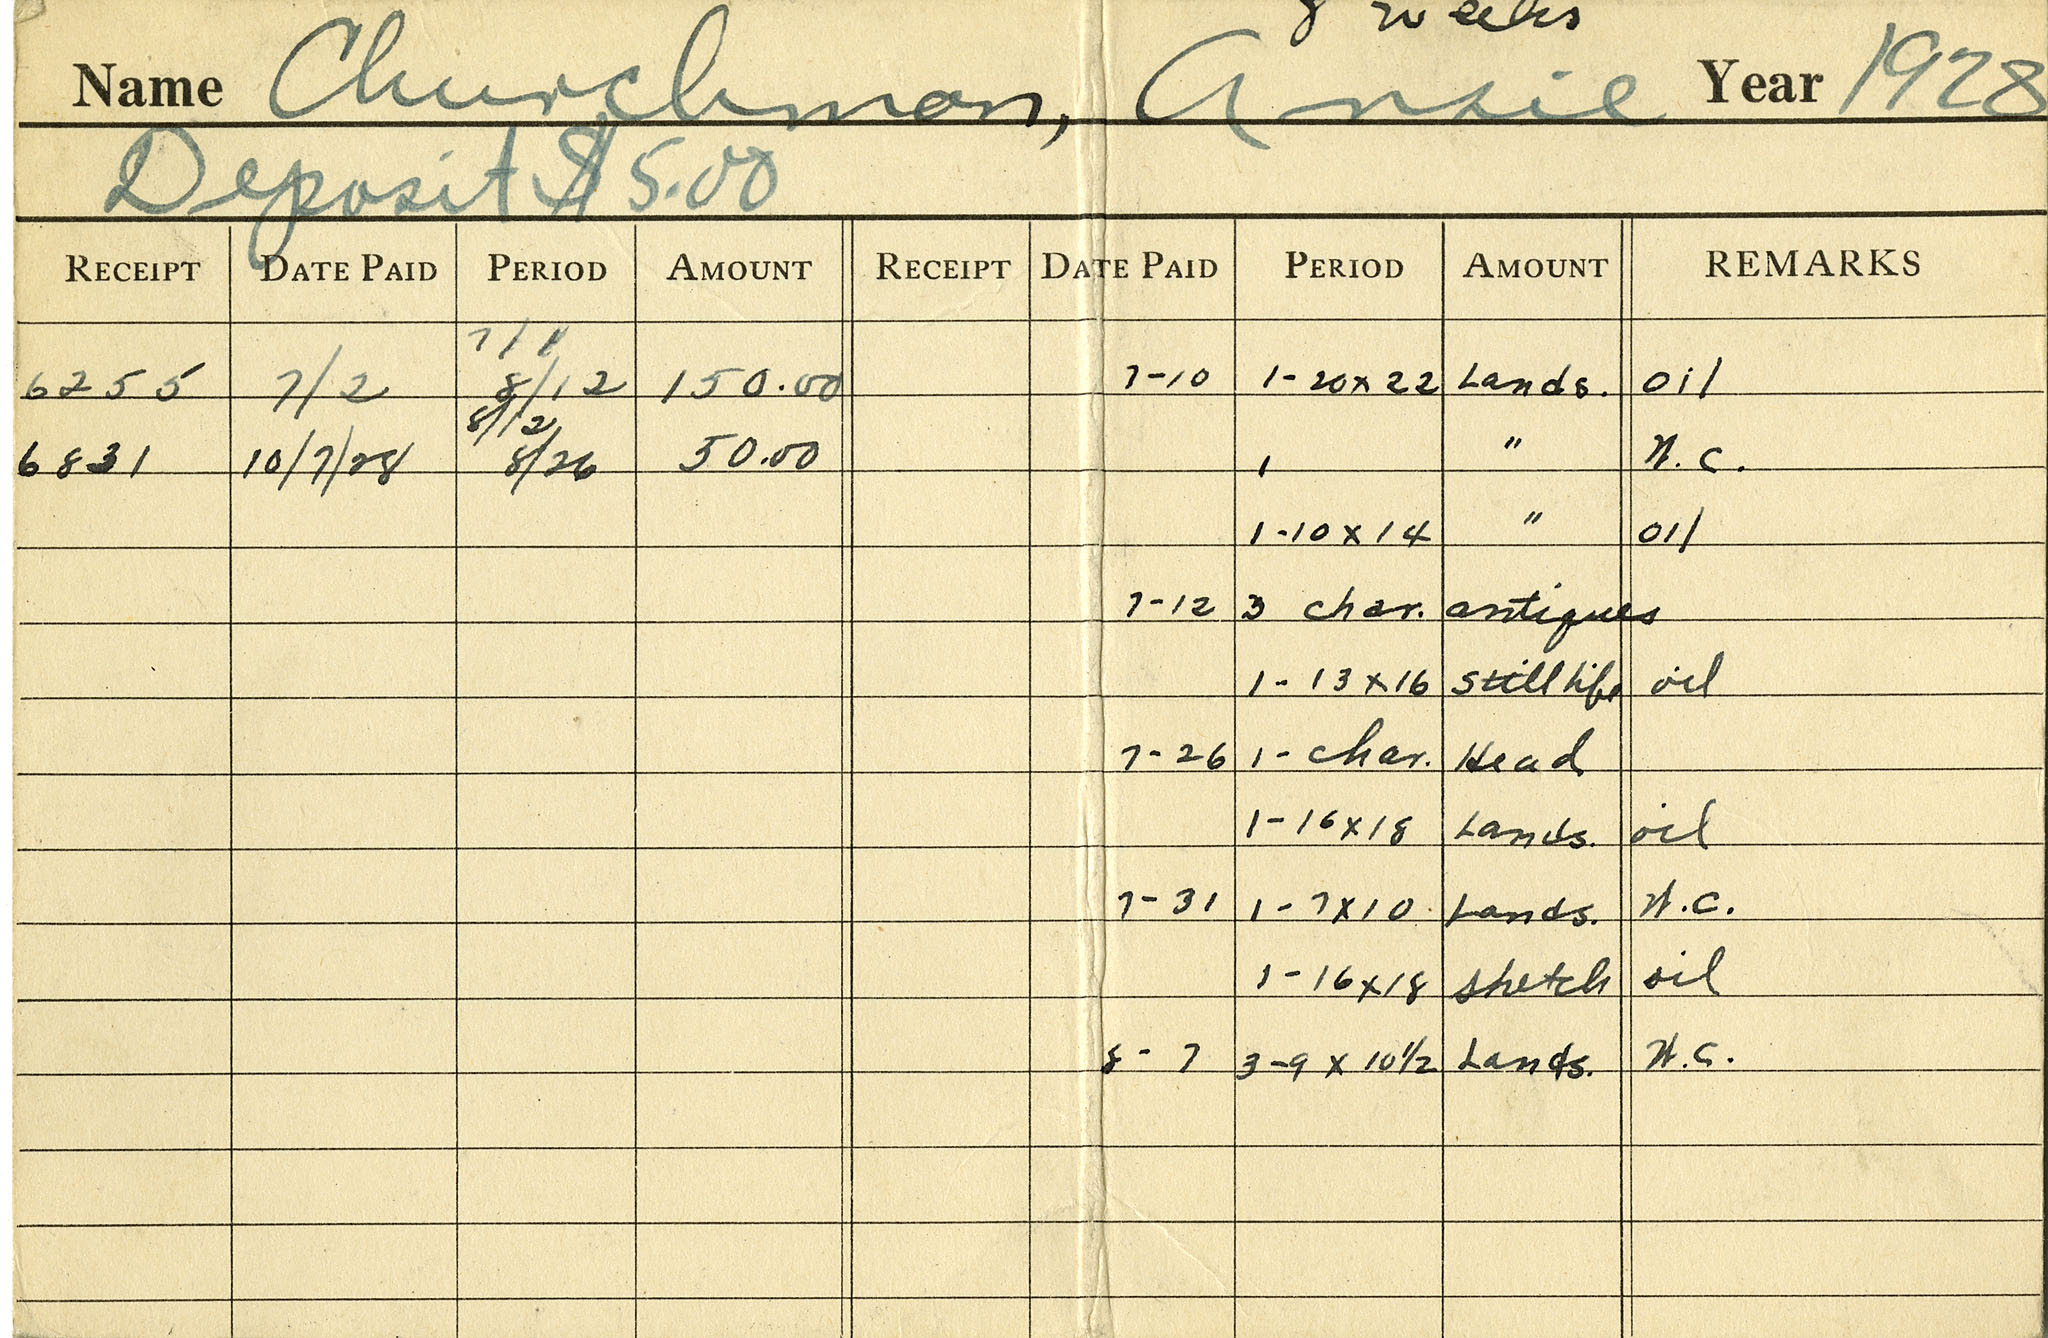 8 weeks
Name Churchman, Ansie Year 1928
Deposit $5.00
RECEIPT DATE PAID PERIOD AMOUNT RECEIPT DATE PAID PERIOD AMOUNT REMARKS
7/1
6255 7/2 8/12 150.00 7-10 1-20x22 Lands. oil
8/12
6831 10/7/28 8/26 50.00 1 " W.C.
1-10x14 " oil
7-12 3 char. antiques
1-13x16 Still life oil
7-26 1-char. Head
1-16x18 Lands. oil
7-31 1-7x10 Lands. W.C.
1-16x18 sketch oil
8-7 3-9x10 1/2 Lands. W.C.